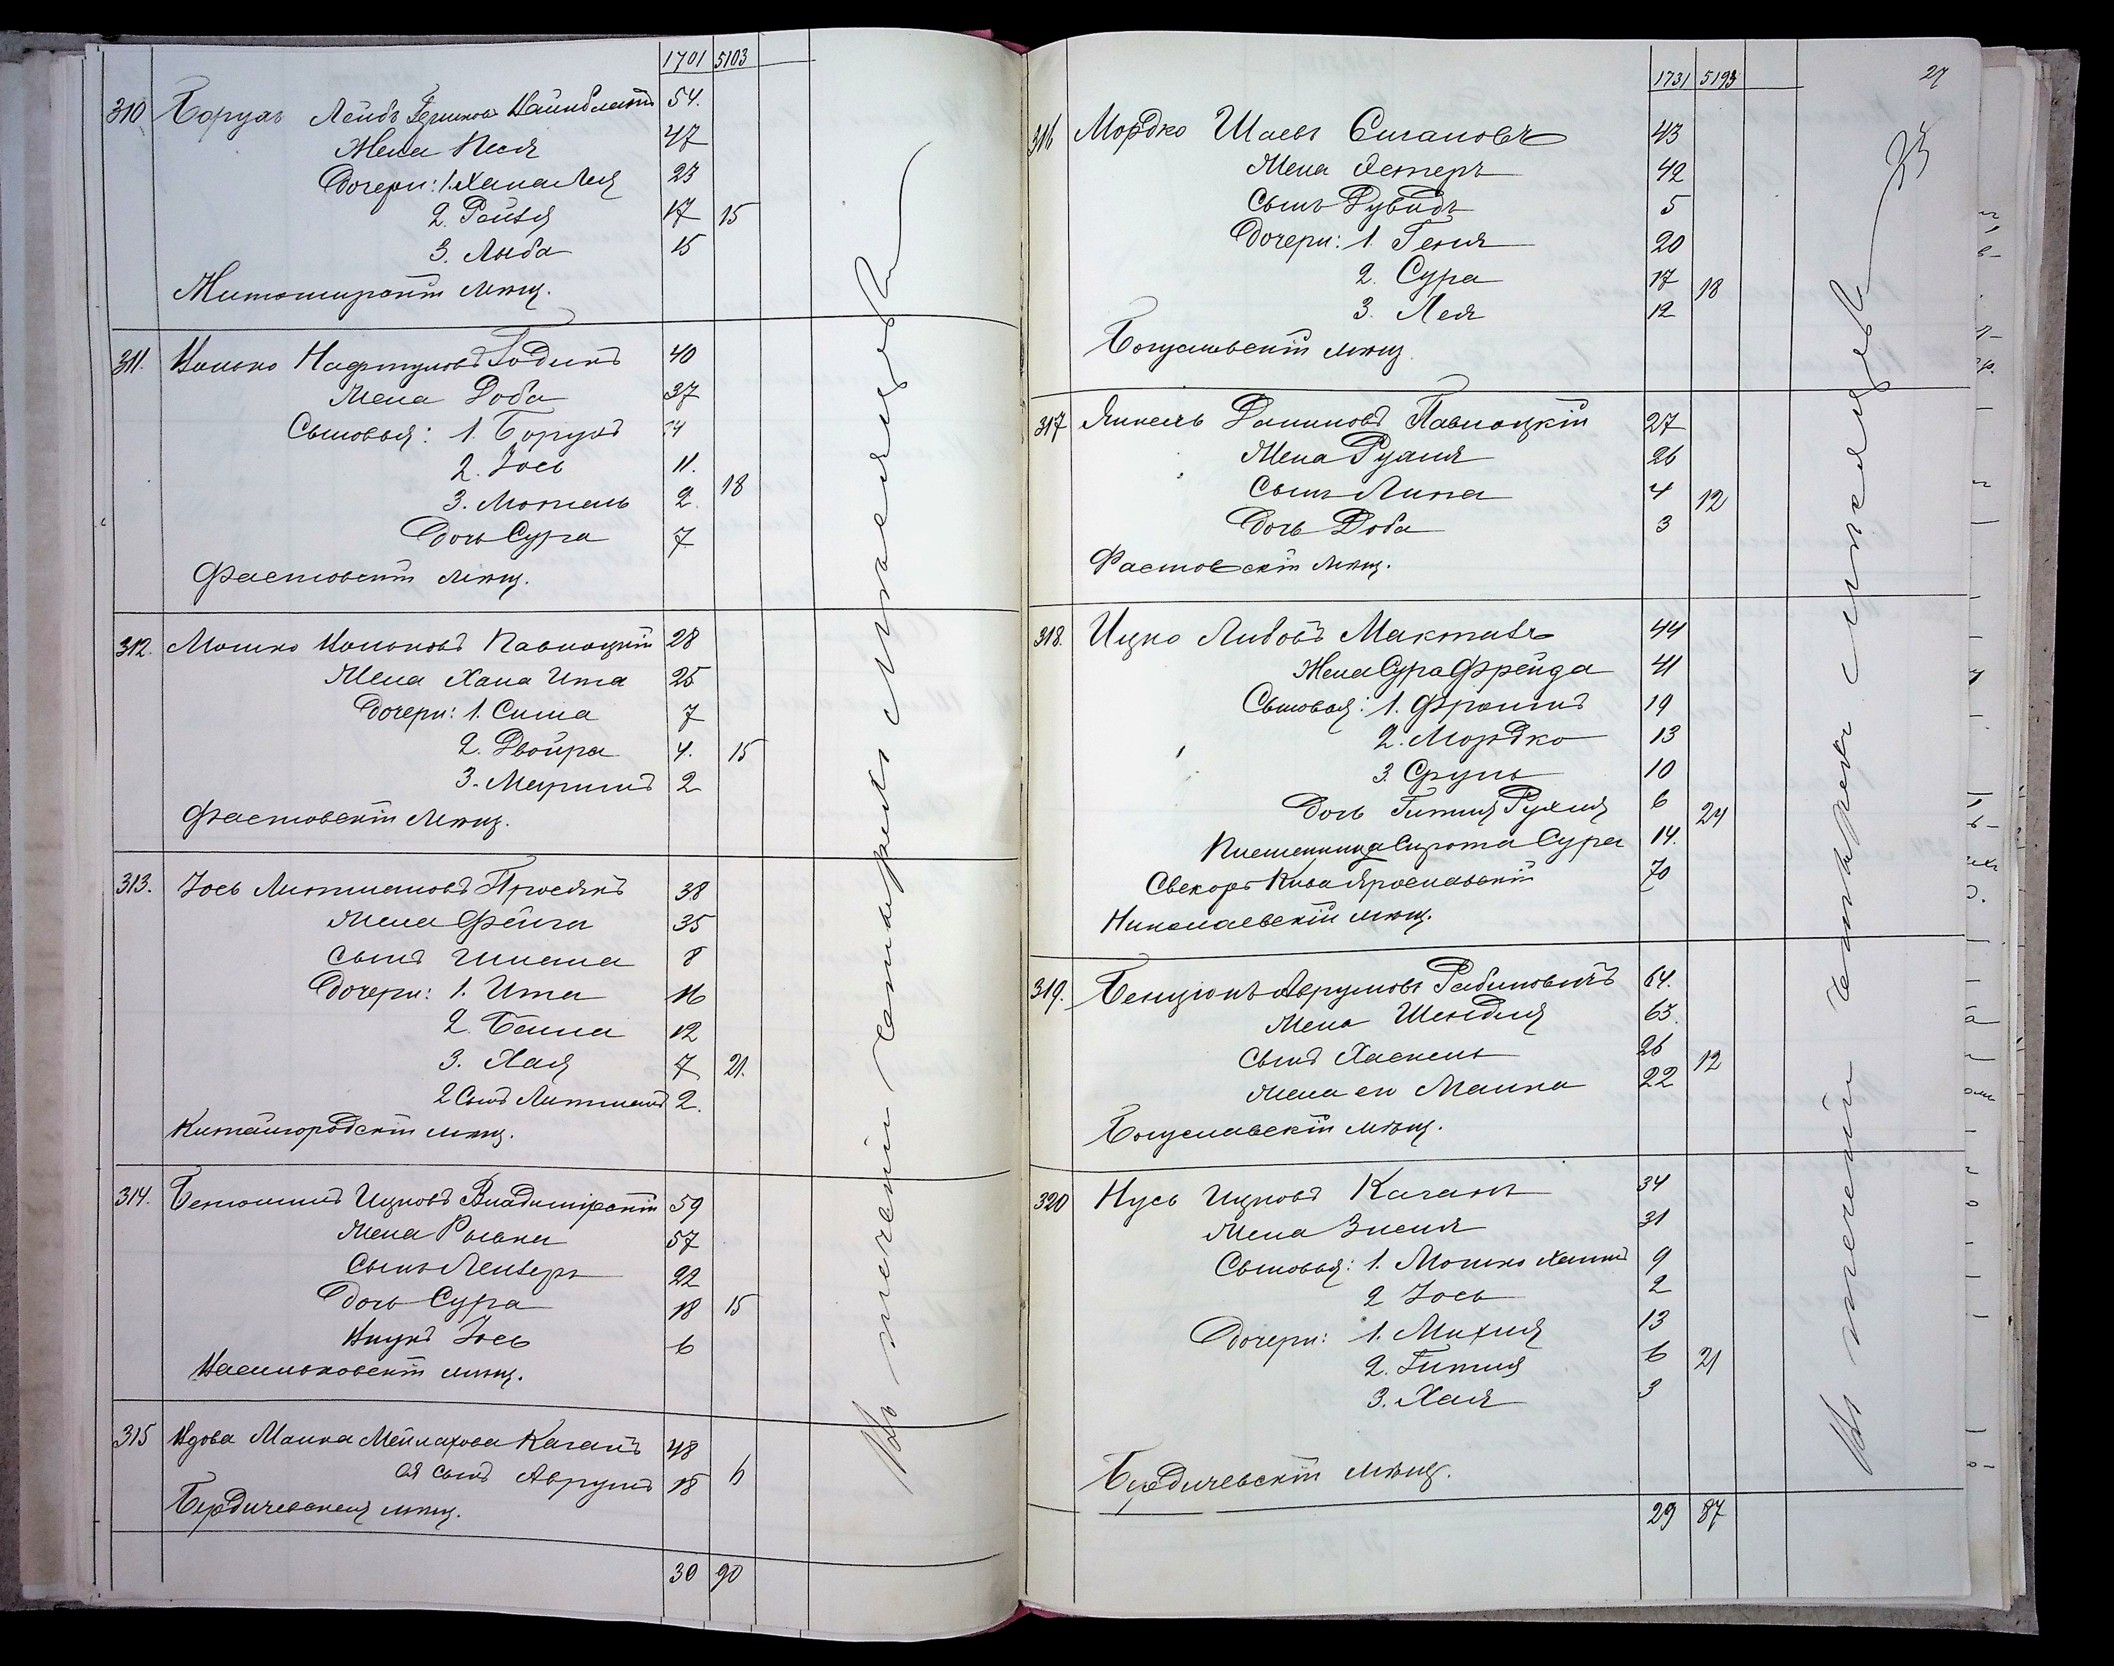 1701 5103
310 Борухъ Лейбъ Гершковъ Вайнблатъ 54.
Жена Песя 47
Дочери: 1. Хана Лея 23
2. Рейзя 17 15
3. Люба 15
Житомирскій мѣщ.
311. Волько Нафтуловъ Годикъ 40
Жена Доба 37
Сыновья: 1. Борухъ 14
2. Іось 11.
3. Мотель 2. 18
Дочь Сура 7
Фастовскій мѣщ.
312. Мошко Вольковъ Паволоцкій 28
Жена Хана Ита 25
Дочери: 1. Сима 7
2. Двойра 4. 15
3. Мариимъ 2
Фастовскій мѣщ.
313. Іось Литмановъ Просякъ 38
Жена Фейга 35
Сынъ Шлема 8
Дочери: 1. Ита 16
2. Бейла 12
3. Хая 7 21.
2 Сынъ Литманъ 2.
Китайгородскій мѣщ.
314. Беніоминъ Ицковъ Владимірскій 59
Жена Рывка 57
Сынъ Лейзеръ 22
Дочь Сура 18 15
Внукъ Іось 6
Васильковскій мѣщ.
315 Вдова Малка Мейлахова Каганъ 48
Ея сынъ Аврумъ 18 6
Бердичевская мѣщ.
30 90
Въ теченіи четырехъ мѣсяцевъ
1731 5193 27
33
316 Мордко Шаевъ Сигаловъ 43
Жена Эстеръ 42
Сынъ Дувидъ 5
Дочери: 1. Геня 20
2. Сура 17 18
3. Лея 12
Богуславскій мѣщ.
317 Янкель Даниловъ Паволоцкій 27
Жена Рухля 26
Сынъ Липа 4 12
Дочь Доба 3
Фастовскій мѣщ.
318. Ицко Либовъ Мактазъ 44
Жена Сура Фрейда 41
Сыновья: 1. Фроимъ 19
2. Мордко 13
3. Сруль 10
Дочь Гитля Рухля 6 24
Племянница Сирота Сура 14.
Свекоръ Кива Ярославскій 70
Николаевскій мѣщ.
319. Бенціонъ Аврумовъ Рабиновичъ 64.
Жена Шендля 63.
Сынъ Хаскель 26 12
Жена его Малка 22
Богуславскій мѣщ.
320 Нусь Ицковъ Каганъ 34
Жена Злеля 31
Сыновья: 1. Мошко Хаимъ 9
2 Іось 2
Дочери: 1. Михля 13
2. Гитля 6 21
3. Хая 3
Бердичевскій мѣщ.
29 87
Въ теченіи четырехъ мѣсяцевъ